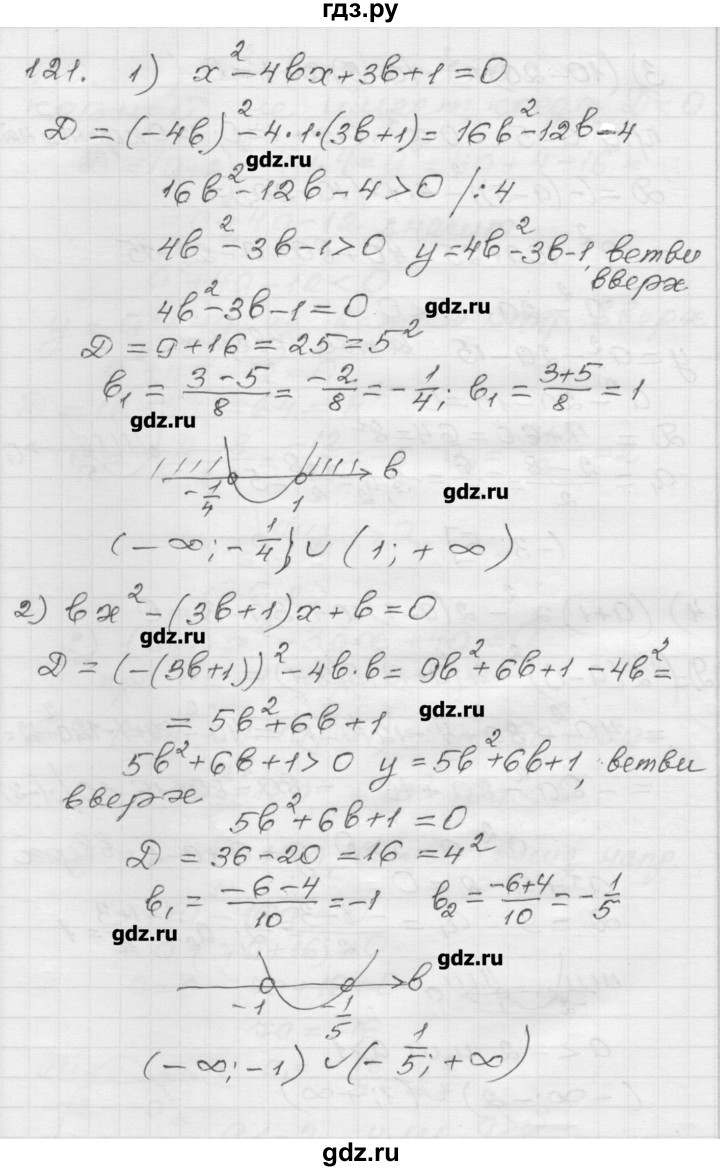 гдз.ру
121. 1) x² - 4bx + 3b + 1 = 0
D = (-4b)² - 4·1·(3b+1) = 16b² - 12b - 4
gdz.ru
16b² - 12b - 4 > 0 /:4
4b² - 3b - 1 > 0 y = 4b² - 3b - 1, ветви
вверх
4b² - 3b - 1 = 0
gdz.ru
D = 9 + 16 = 25 = 5²
b₁ = (3 - 5)/8 = -2/8 = -1/4; b₁ = (3+5)/8 = 1
gdz.ru
b
-1/4 1
gdz.ru
(-∞; -1/4) ∪ (1; +∞)
2) bx² - (3b+1)x + b = 0
gdz.ru
D = (-(3b+1))² - 4b·b = 9b² + 6b + 1 - 4b² =
= 5b² + 6b + 1
gdz.ru
5b² + 6b + 1 > 0 y = 5b² + 6b + 1, ветви
вверх
5b² + 6b + 1 = 0
D = 36 - 20 = 16 = 4²
b₁ = (-6 - 4)/10 = -1 b₂ = (-6+4)/10 = -1/5
gdz.ru
gdz.ru
b
-1 -1/5
(-∞; -1) ∪ (-1/5; +∞)
gdz.ru